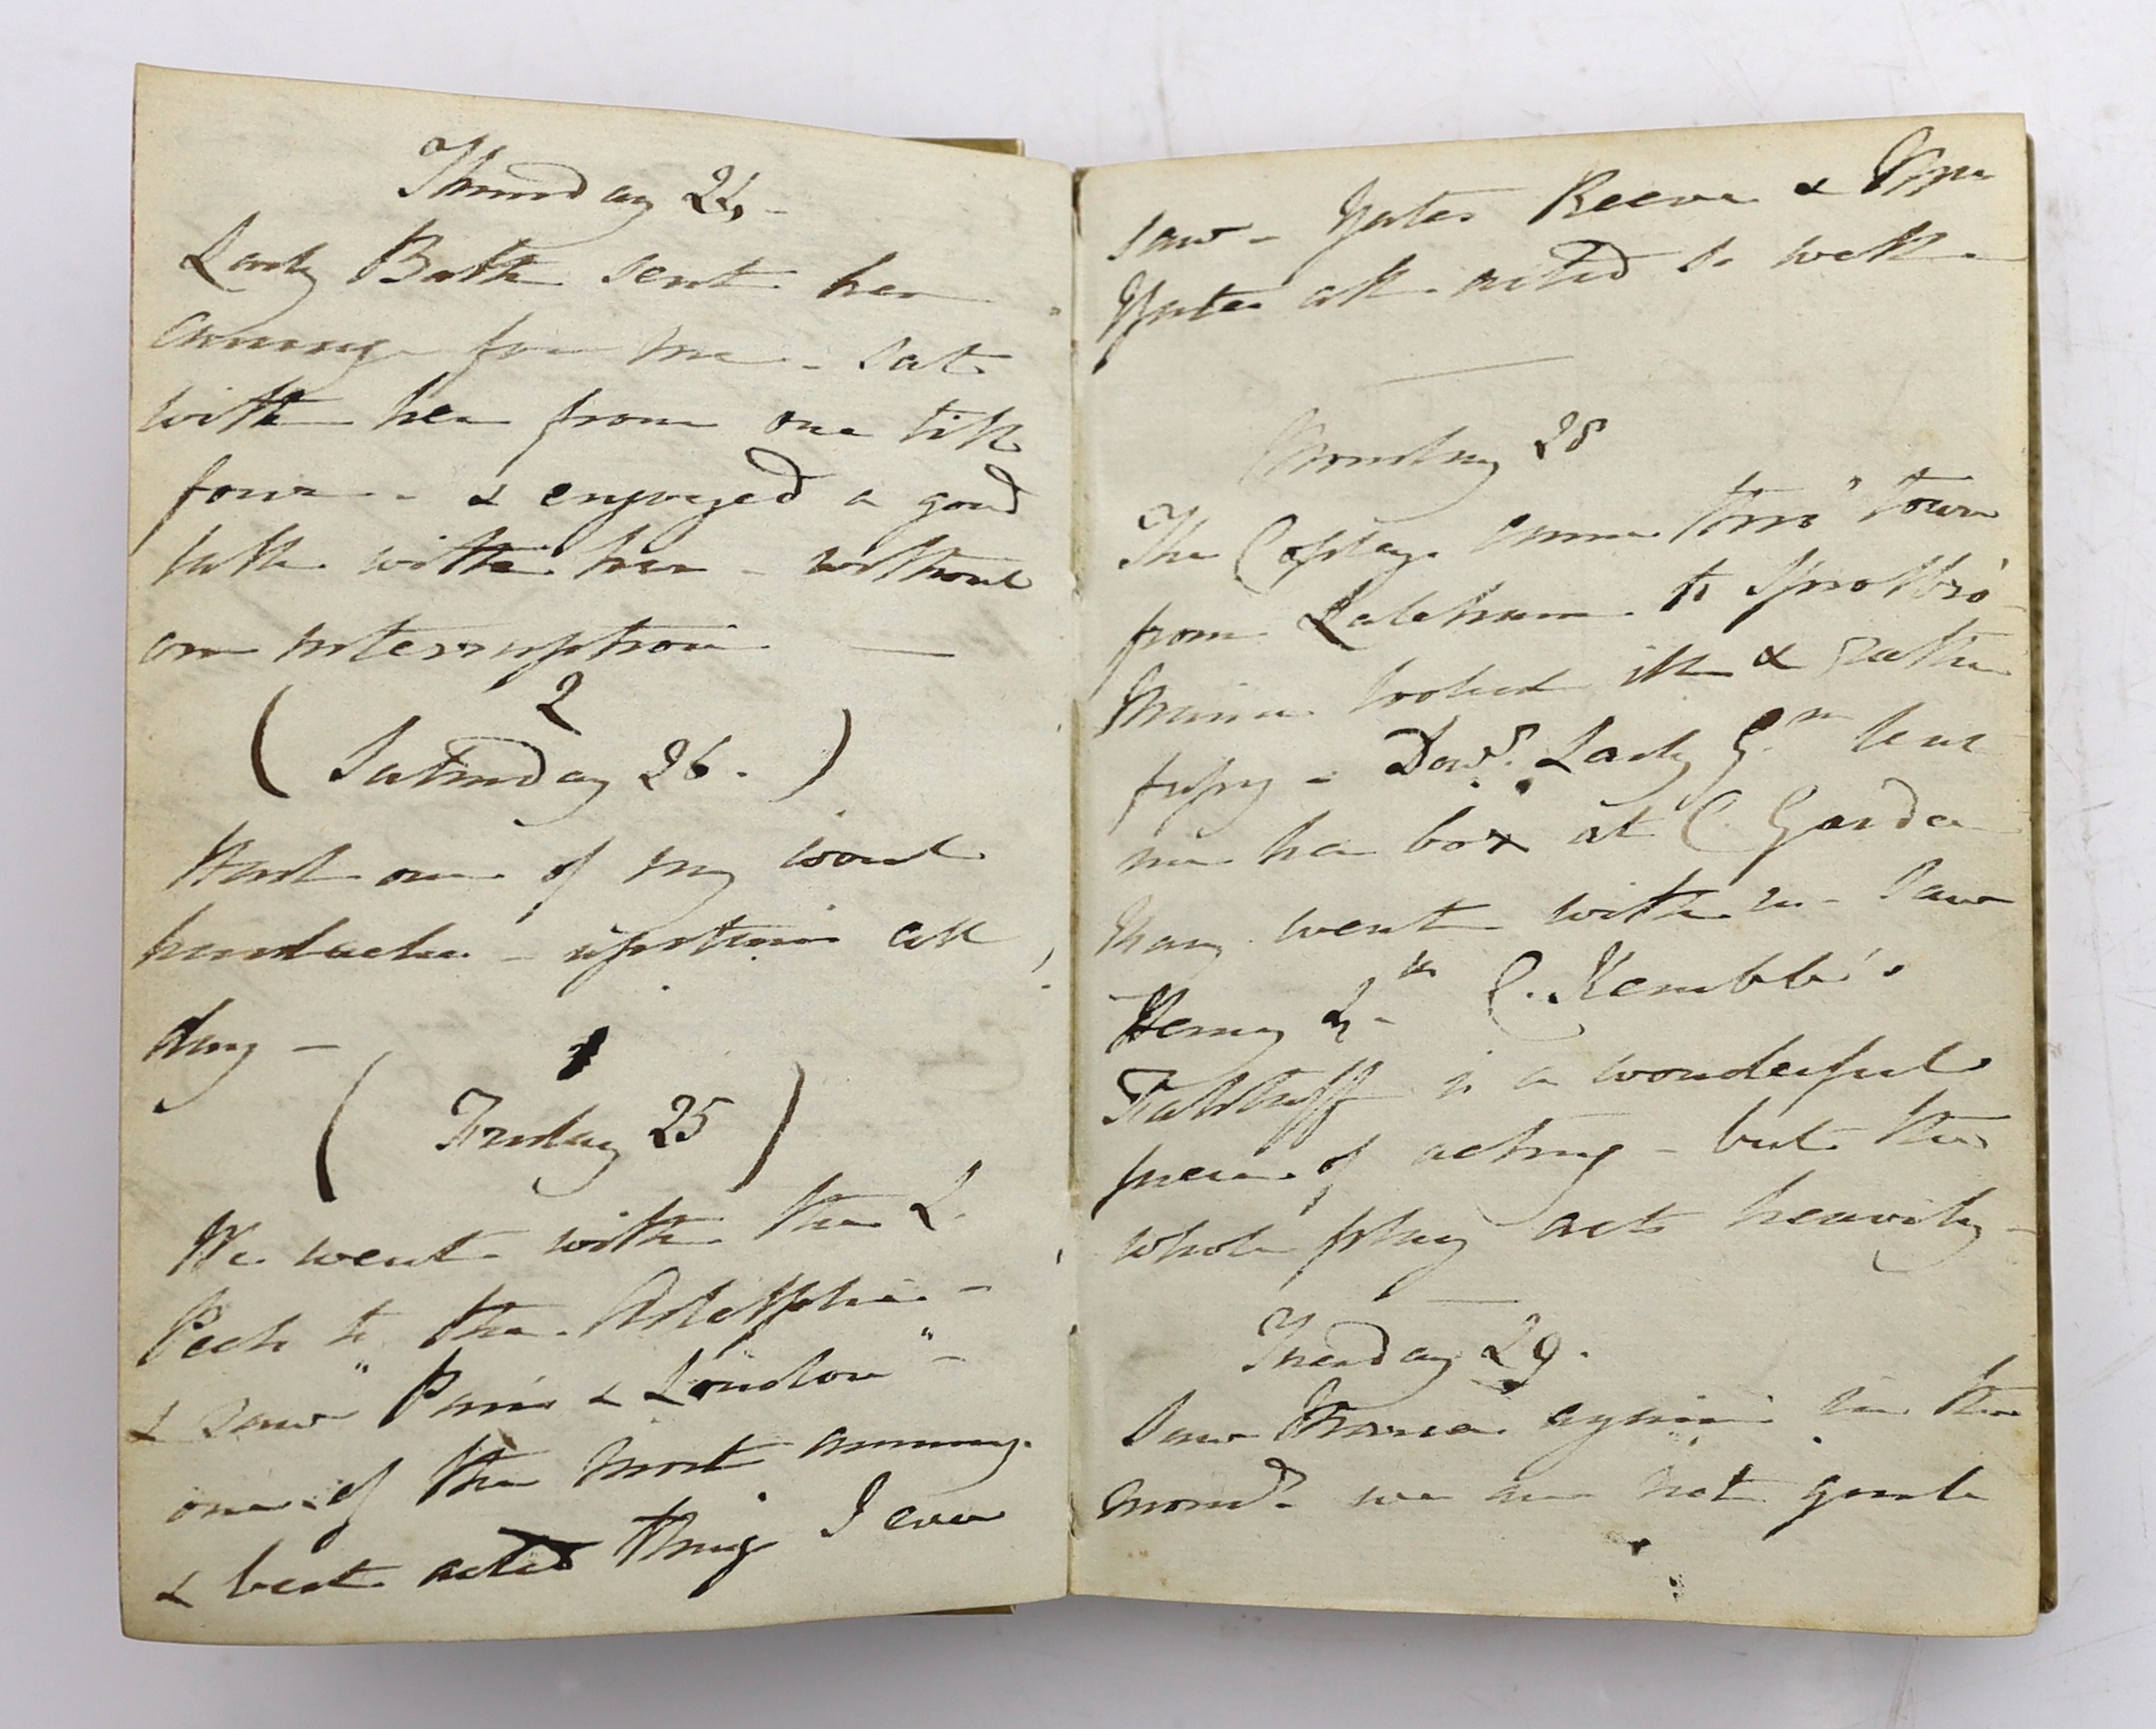 Thursday 24 -
Lady Bath sent her
carriage for me - sat
with her from one till
four - & enjoyed a good
talk with her - without
an interruption —
2
( Saturday 26. )
Had one of my worst
headaches - upstairs all
day -
1
( Friday 25 )
We went with the L.
Peels to the Adelphi -
& saw "Paris & London" -
one of the most amusing
& best acted things I ever
saw - Yates Reeve & Mrs
Yates all acted so well -
Monday 28
The Copleys came thro' town
from Laleham to Sprotbro'
Maria looked ill & rather
fussy - Dowr. Lady Gm lent
me her box at C. Garden
Mary went with us - Saw
Henry 4th C. Kemble's
Falstaff is a wonderful
piece of acting - but the
whole play acts heavily -
Tuesday 29.
Saw Maria again in the
morng. we are not quite